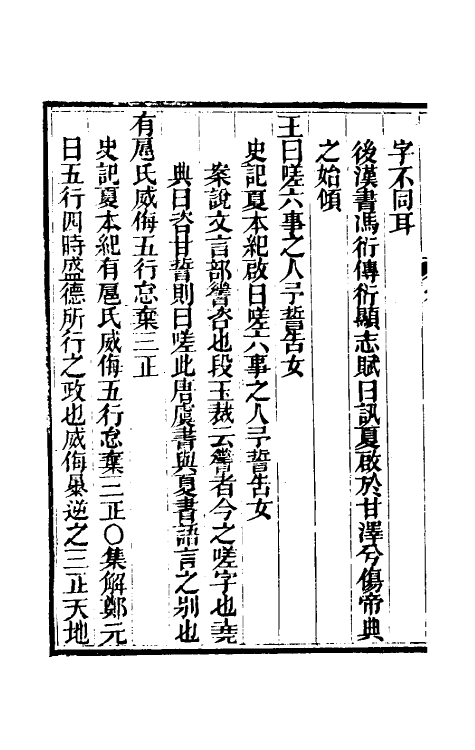 字不同耳
後漢書馮衍傳衍顯志賦曰訊夏啟於甘澤兮傷帝典
之始傾
王曰嗟六事之人予誓告女
史記夏本紀啟曰嗟六事之人予誓告女
案說文言部䜅咨也段玉裁云䜅者今之嗟字也堯
典曰咨甘誓則曰嗟此唐虞書與夏書語言之別也
有扈氏威侮五行怠棄三正
史記夏本紀有扈氏威侮五行怠棄三正〇集解鄭元
曰五行四時盛德所行之政也威侮暴逆之三正天地